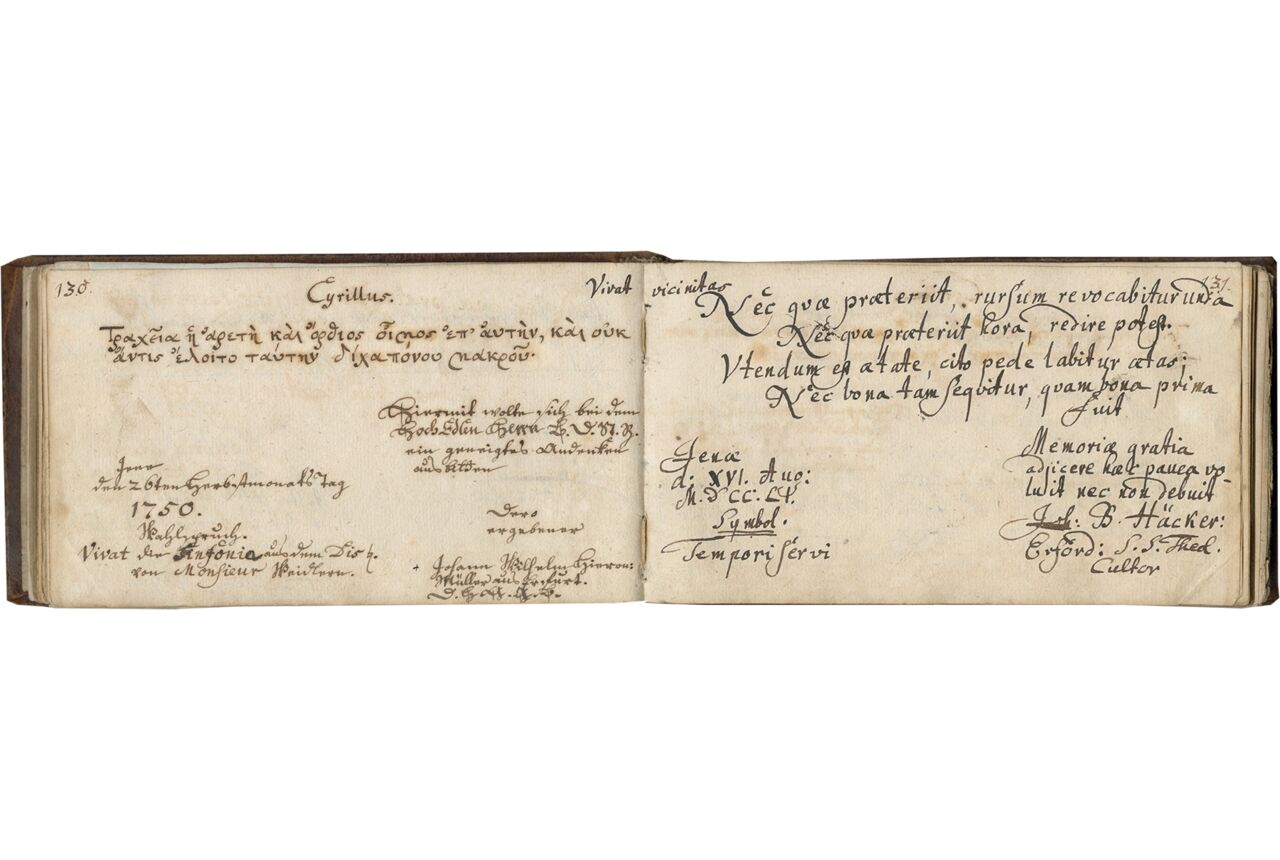 130.
Cyrillus.
Τραχεῖα ἡ ἀρετὴ καὶ ὄρθιος οἶμος ἐπ' αυτὴν, καὶ οὐκ
ἄντις ἕλοιτο ταύτην δίχα πόνου μακροῦ.
Hiermit wolte sich bei dem
HochEdlen Herrn B. D. St. R.
ein geneigtes Andenken
ausbitten
Jena
den 26ten Herbstmonats Tag
1750.
Wahlspruch.
Vivat die Sinfonie aus dem Dis ♮.
von Monsieur Weidlern.
Dero
ergebener
Johann Wilhelm Hieron:
Müller aus Erfurt.
Vivat vicinitas
131.
Nec quæ præteriit, rursum revocabitur unda
Nec quæ præteriit hora, redire potest.
Vtendum est ætate, cito pede labitur ætas;
Nec bona tam seqvitur, quam bona prima
fuit
Jenæ
d: XVI. Aug:
M.DCC.LV.
Symbol.
Tempori servi
Memoriæ gratia
adjicere hæc pauca vo-
luit nec non debuit
Joh: B. Häcker:
Erford: S. S. Theol.
Cultor